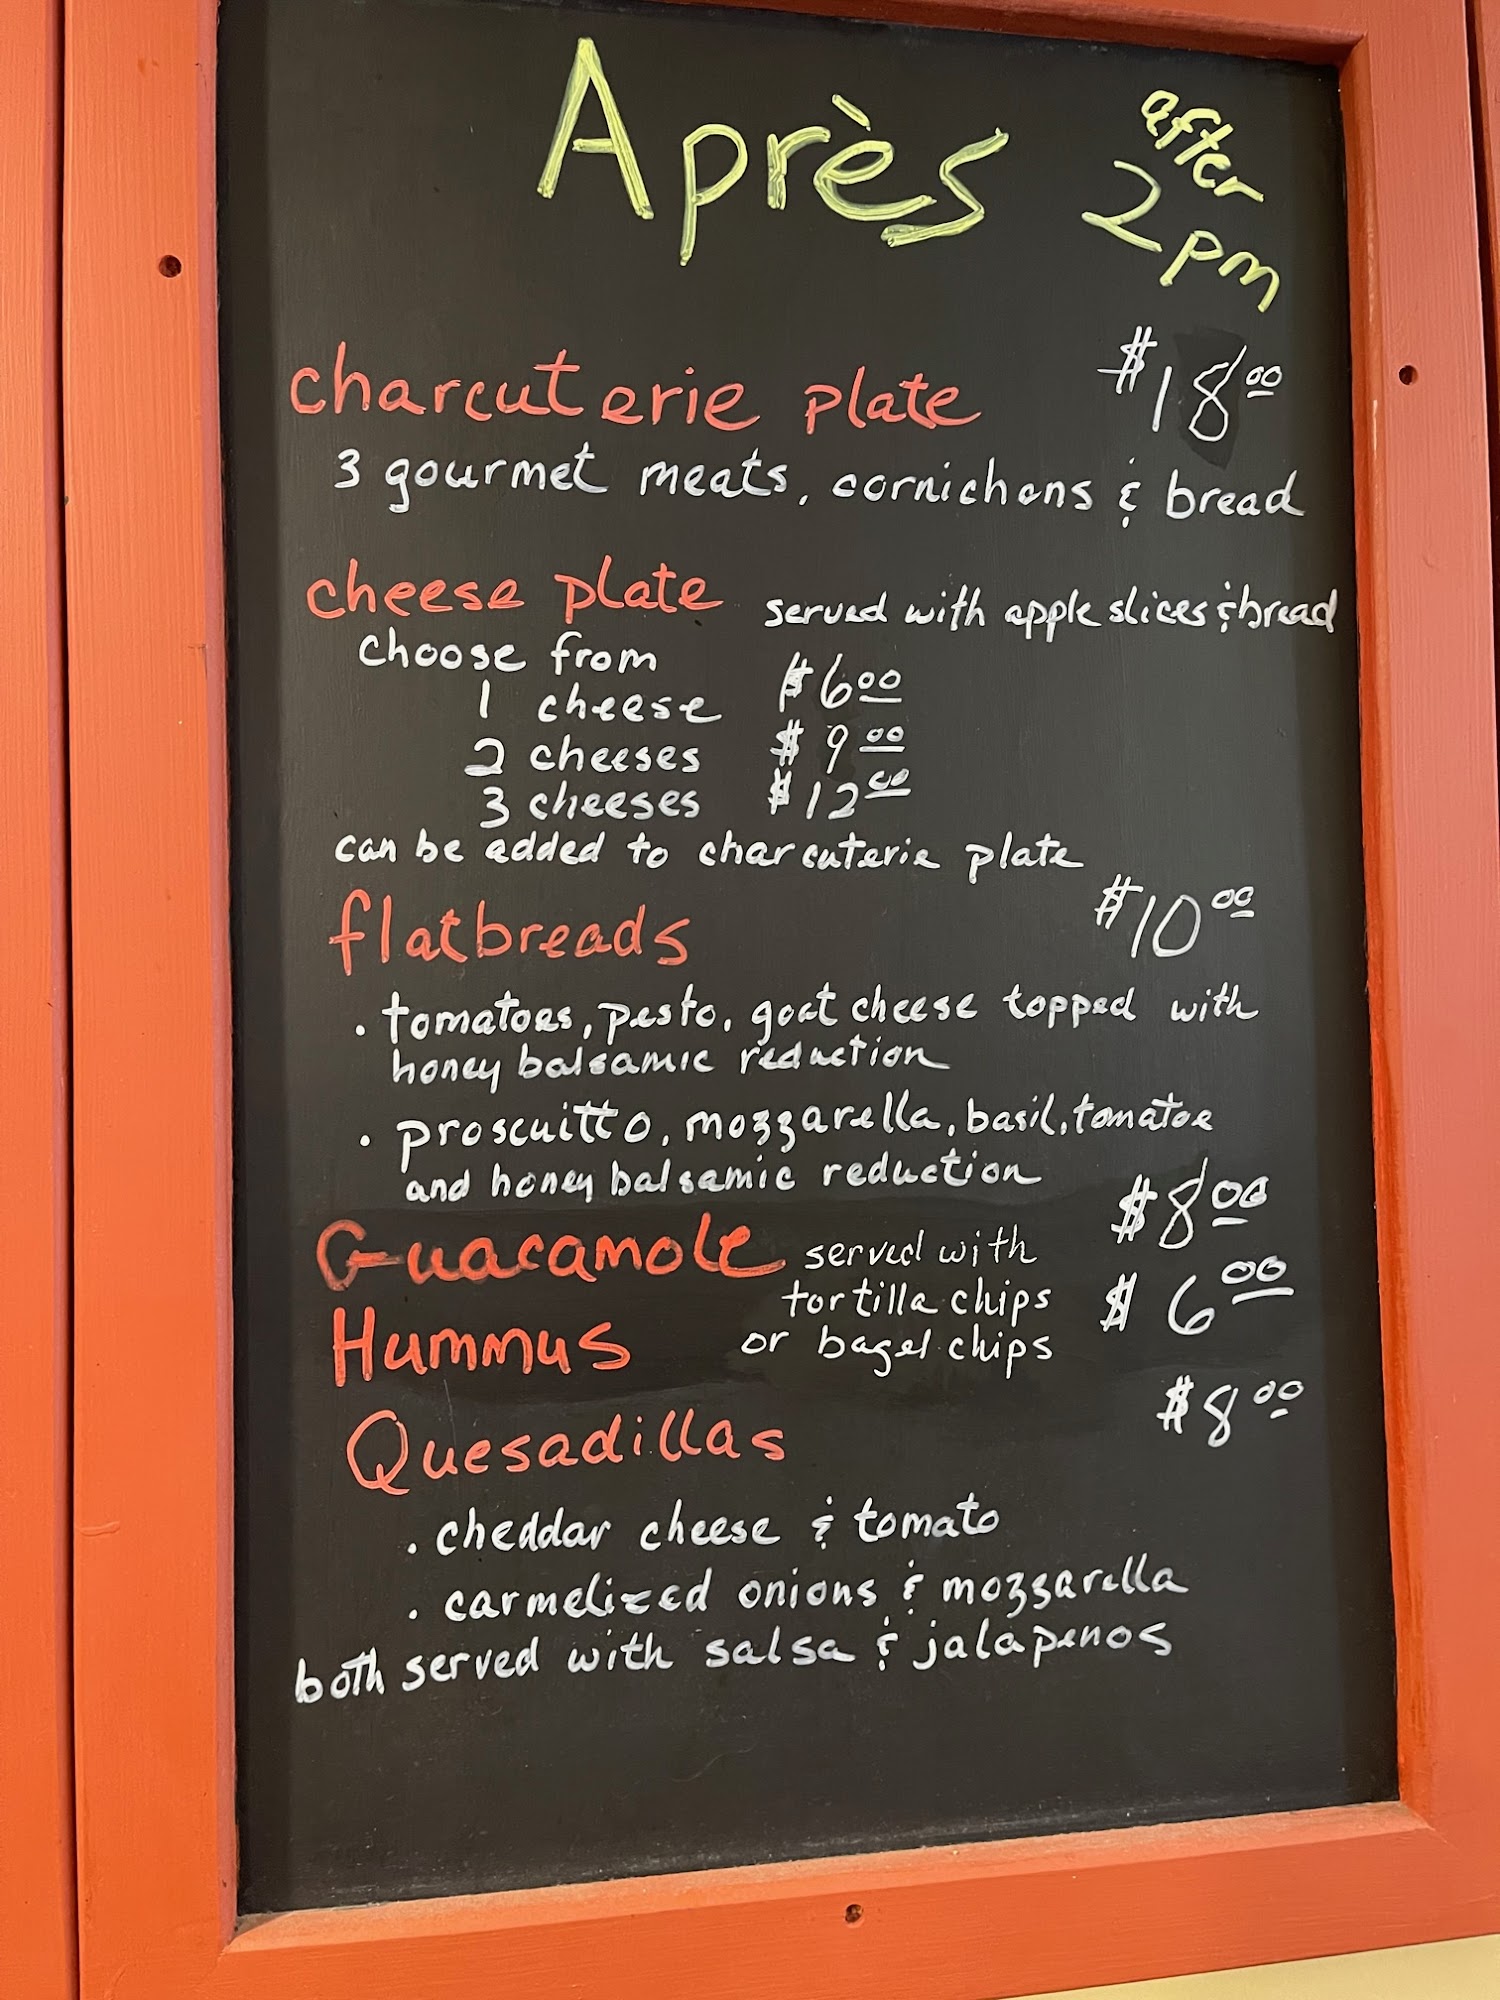 Après after 2pm
charcuterie plate $18.00
3 gourmet meats, cornichons & bread
cheese plate served with apple slices & bread
choose from
1 cheese $6.00
2 cheeses $9.00
3 cheeses $12.00
can be added to charcuterie plate
flatbreads $10.00
• tomatoes, pesto, goat cheese topped with
honey balsamic reduction
• proscuitto, mozzarella, basil, tomatoe
and honey balsamic reduction
Guacamole served with $8.00
tortilla chips $6.00
Hummus or bagel chips
Quesadillas $8.00
• cheddar cheese & tomato
• carmelized onions & mozzarella
both served with salsa & jalapenos